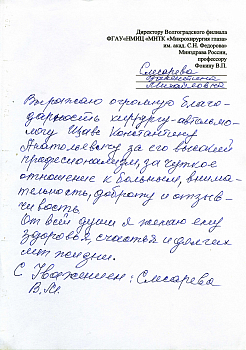 Директору Волгоградского филиала
ФГАУ«НМИЦ «МНТК «Микрохирургия глаза»
им. акад. С.Н. Федорова»
Минздрава России,
профессору
Фокину В.П.
Слесарева
Михайловна
Выражаю огромную благо-
дарность хирургу-офтальмо-
логу Константину
Анатольевичу за его высокий
профессионализм, за чуткое
отношение к больным, внима-
тельность, доброту и отзыв-
чивость.
От всей души я желаю ему
здоровья, счастья и долгих
лет жизни.
С Уважением: Слесарева
В.М.